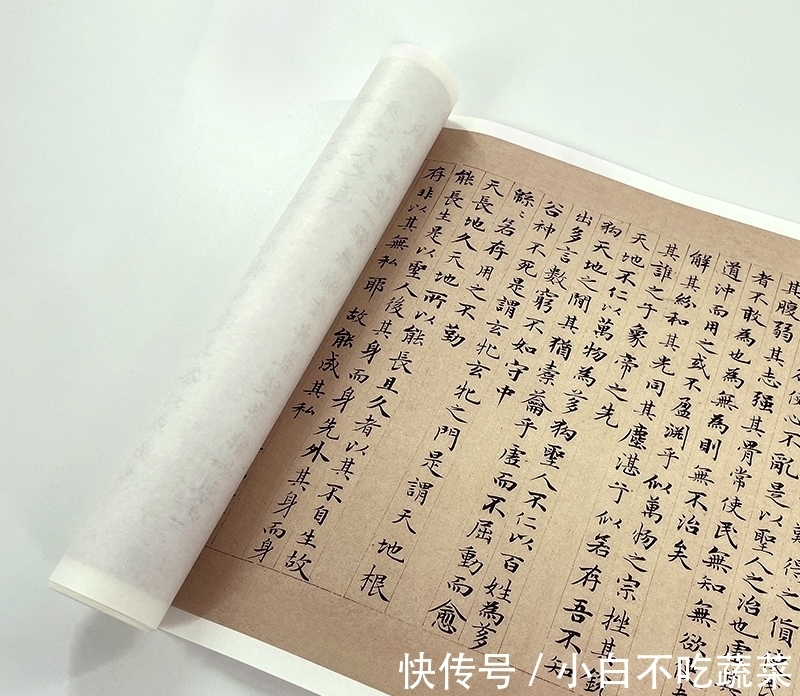 難得之貨
使心不亂是以聖人之治也虛
其腹弱其志强其骨常使民無知無欲
者不敢為也為無為則無不治矣
道沖而用之或不盈渊乎似萬物之宗挫其銳
解其紛和其光同其塵湛兮似若存吾不知
其誰之子象帝之先
天地不仁以萬物為芻狗聖人不仁以百姓為芻
狗天地之間其猶橐籥乎虛而不屈動而愈
出多言數窮不如守中
谷神不死是謂玄牝玄牝之門是謂天地根
綿〻若存用之不勤
天長地久天地所以能長且久者以其不自生故
能長生是以聖人後其身而身先外其身而身
存非以其無私耶故能成其私
快传号/小白不吃蔬菜